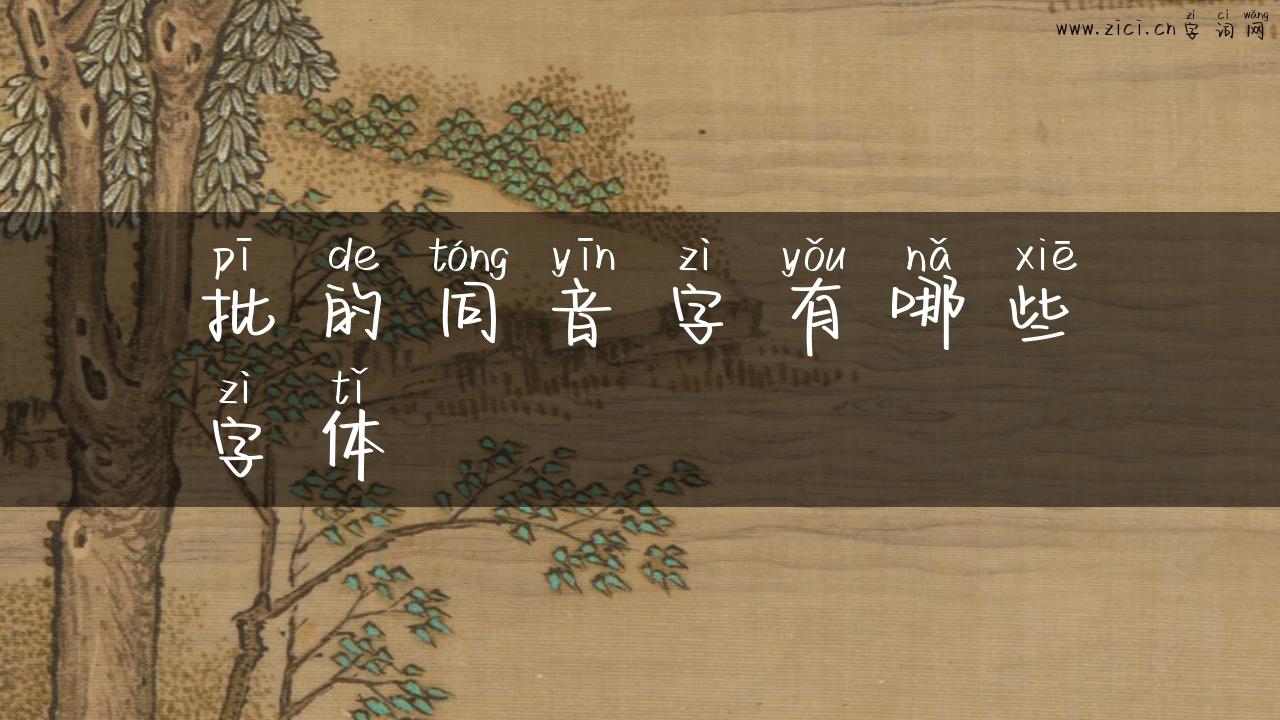 zì cí wǎng
www.zici.cn 字词网
pī de tóng yīn zì yǒu nǎ xiē
批的同音字有哪些
zì tǐ
字体